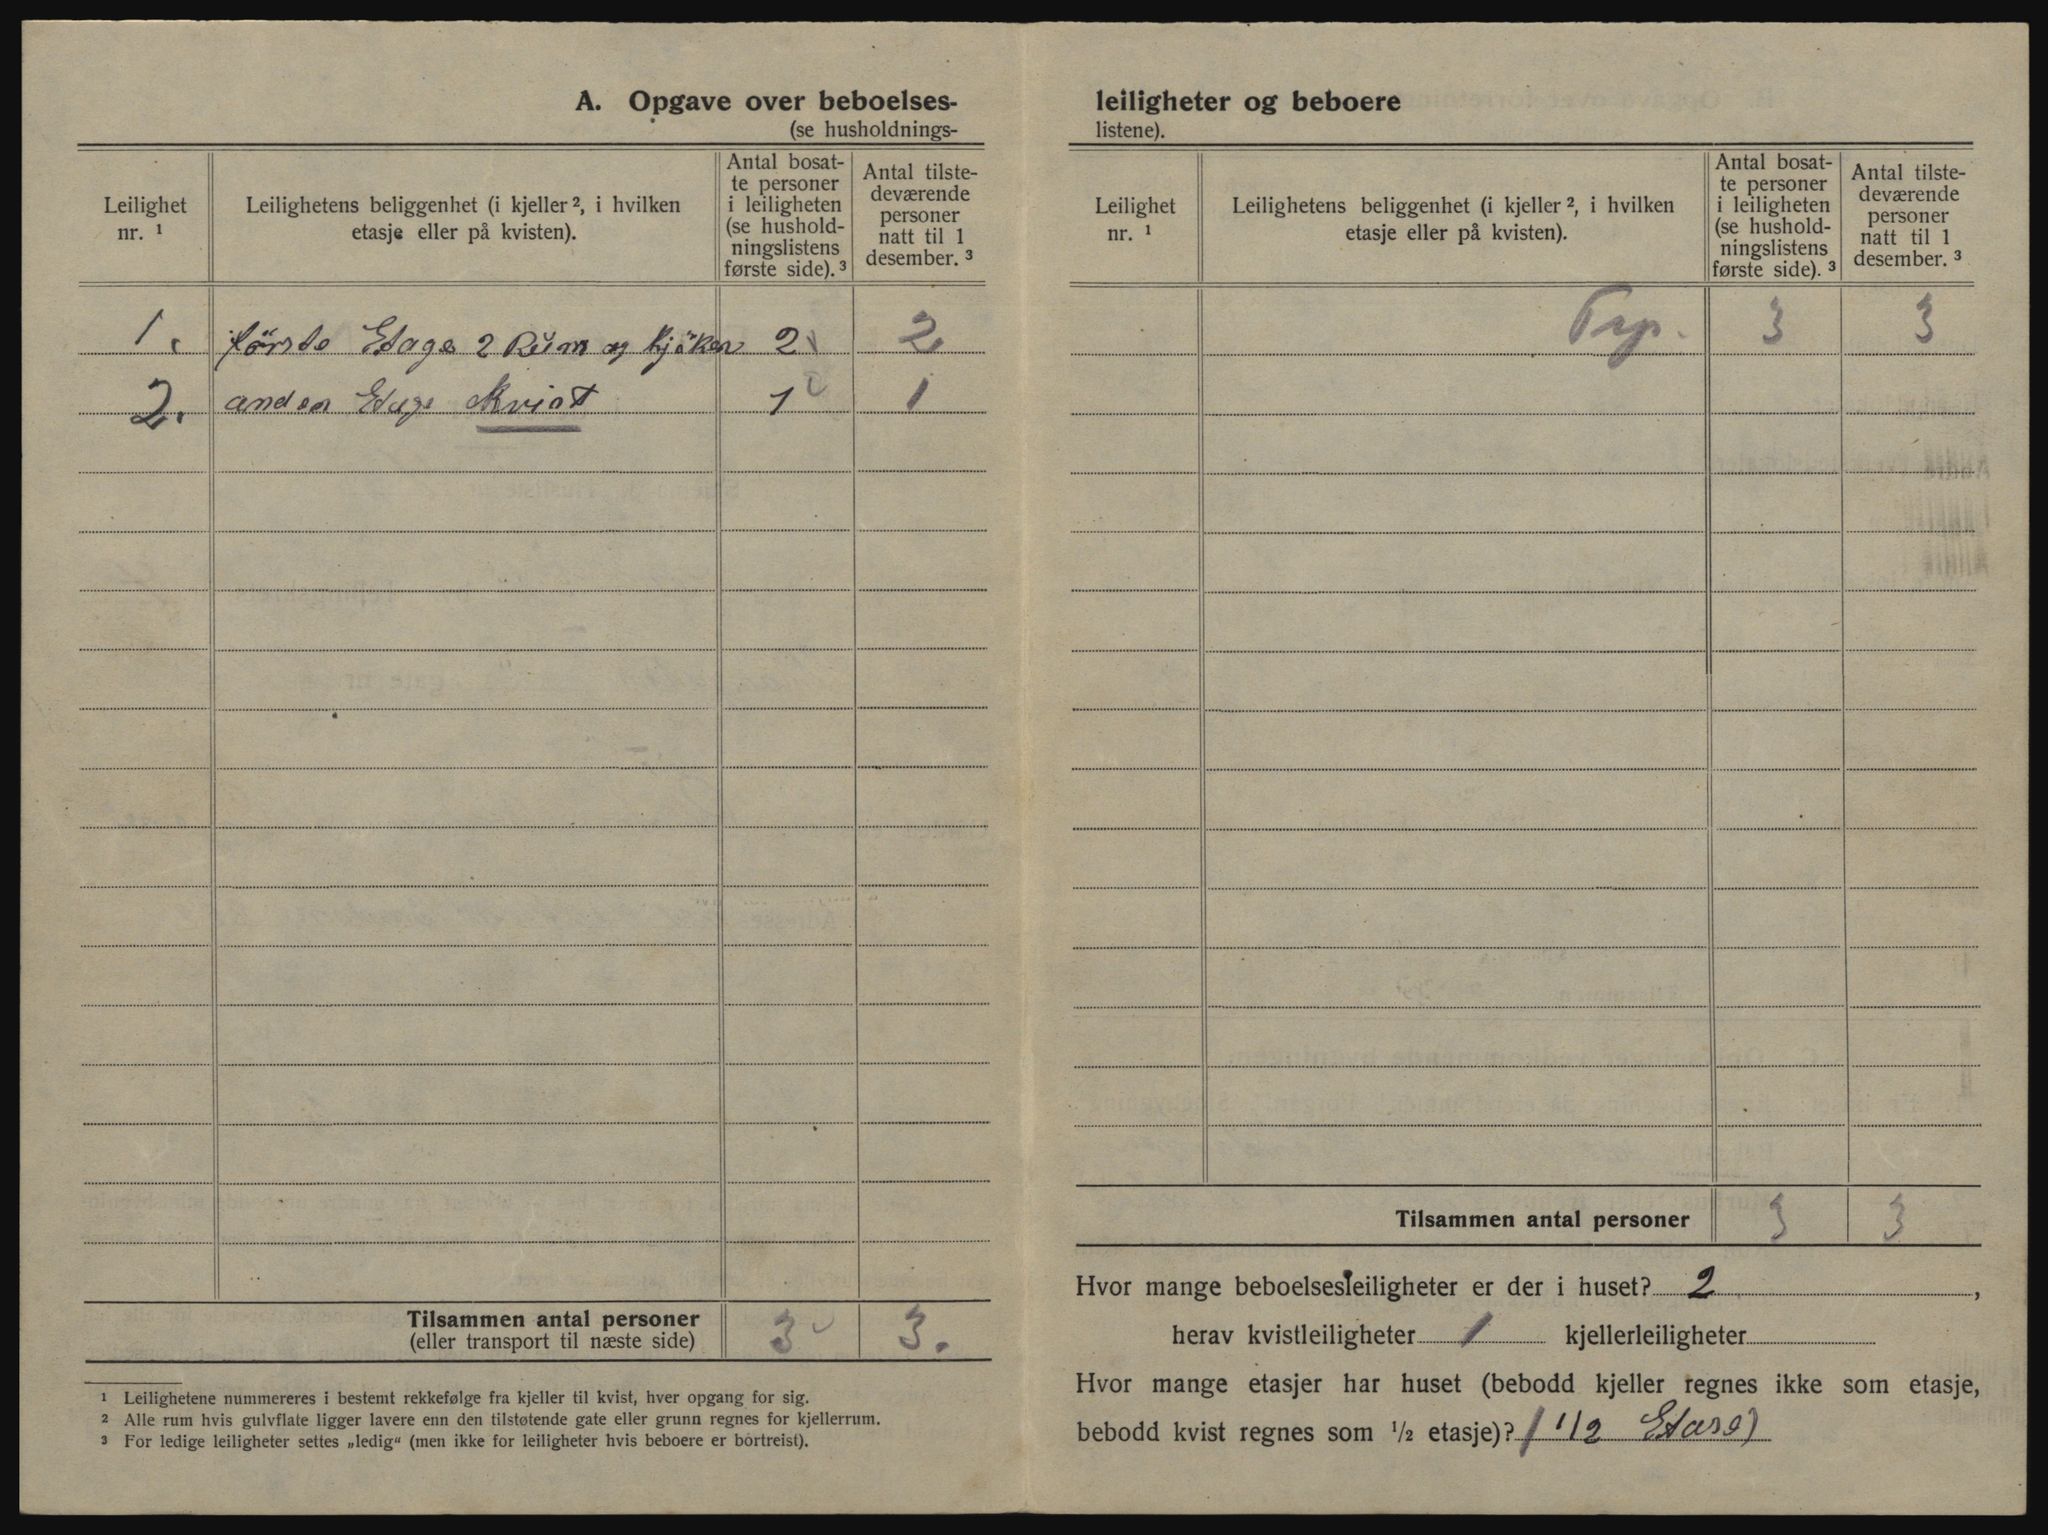 A. Opgave over beboelses-
(se husholdnings-
Leilighet
nr. ¹
Leilighetens beliggenhet (i kjeller ², i hvilken
etasje eller på kvisten).
Antal bosat-
te personer
i leiligheten
(se hushold-
ningslistens
første side). ³
Antal tilste-
deværende
personer
natt til 1
desember. ³
1. förste Etage 2 Rum og kjöken 2 2
2. anden Etage Kvist 1 1
Tilsammen antal personer 3 3.
(eller transport til næste side)
¹ Leilighetene nummereres i bestemt rekkefølge fra kjeller til kvist, hver opgang for sig.
² Alle rum hvis gulvflate ligger lavere enn den tilstøtende gate eller grunn regnes for kjellerrum.
³ For ledige leiligheter settes „ledig“ (men ikke for leiligheter hvis beboere er bortreist).
leiligheter og beboere
listene).
Leilighet
nr. ¹
Leilighetens beliggenhet (i kjeller ², i hvilken
etasje eller på kvisten).
Antal bosat-
te personer
i leiligheten
(se hushold-
ningslistens
første side). ³
Antal tilste-
deværende
personer
natt til 1
desember. ³
3 3
Tilsammen antal personer 3 3
Hvor mange beboelsesleiligheter er der i huset? 2 ,
herav kvistleiligheter 1 kjellerleiligheter
Hvor mange etasjer har huset (bebodd kjeller regnes ikke som etasje,
bebodd kvist regnes som ½ etasje)? 1 1/2 Etase)